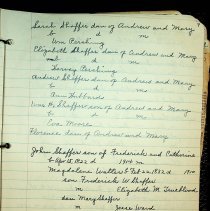 Sarah Shaffer dau of Andrew and Mary
b d m
Wm Pershing
Elizabeth Shaffer dau of Andrew and Mary
b d m
Pershing
Andrew Shaffer son of Andrew and Mary
b d m
Ann
Wm H. Shaffer son of Andrew and Mary
b d m
Eva Moore
Florence dau of Andrew and Mary
John Shaffer son of Frederick and Catherine
b Apr 1822 d 1904 m
Magdalene b Feb 1832 d 1900
son Frederick W Shaffer
m Elizabeth M. Trueblood
dau Mary Shaffer
m Jesse Ward